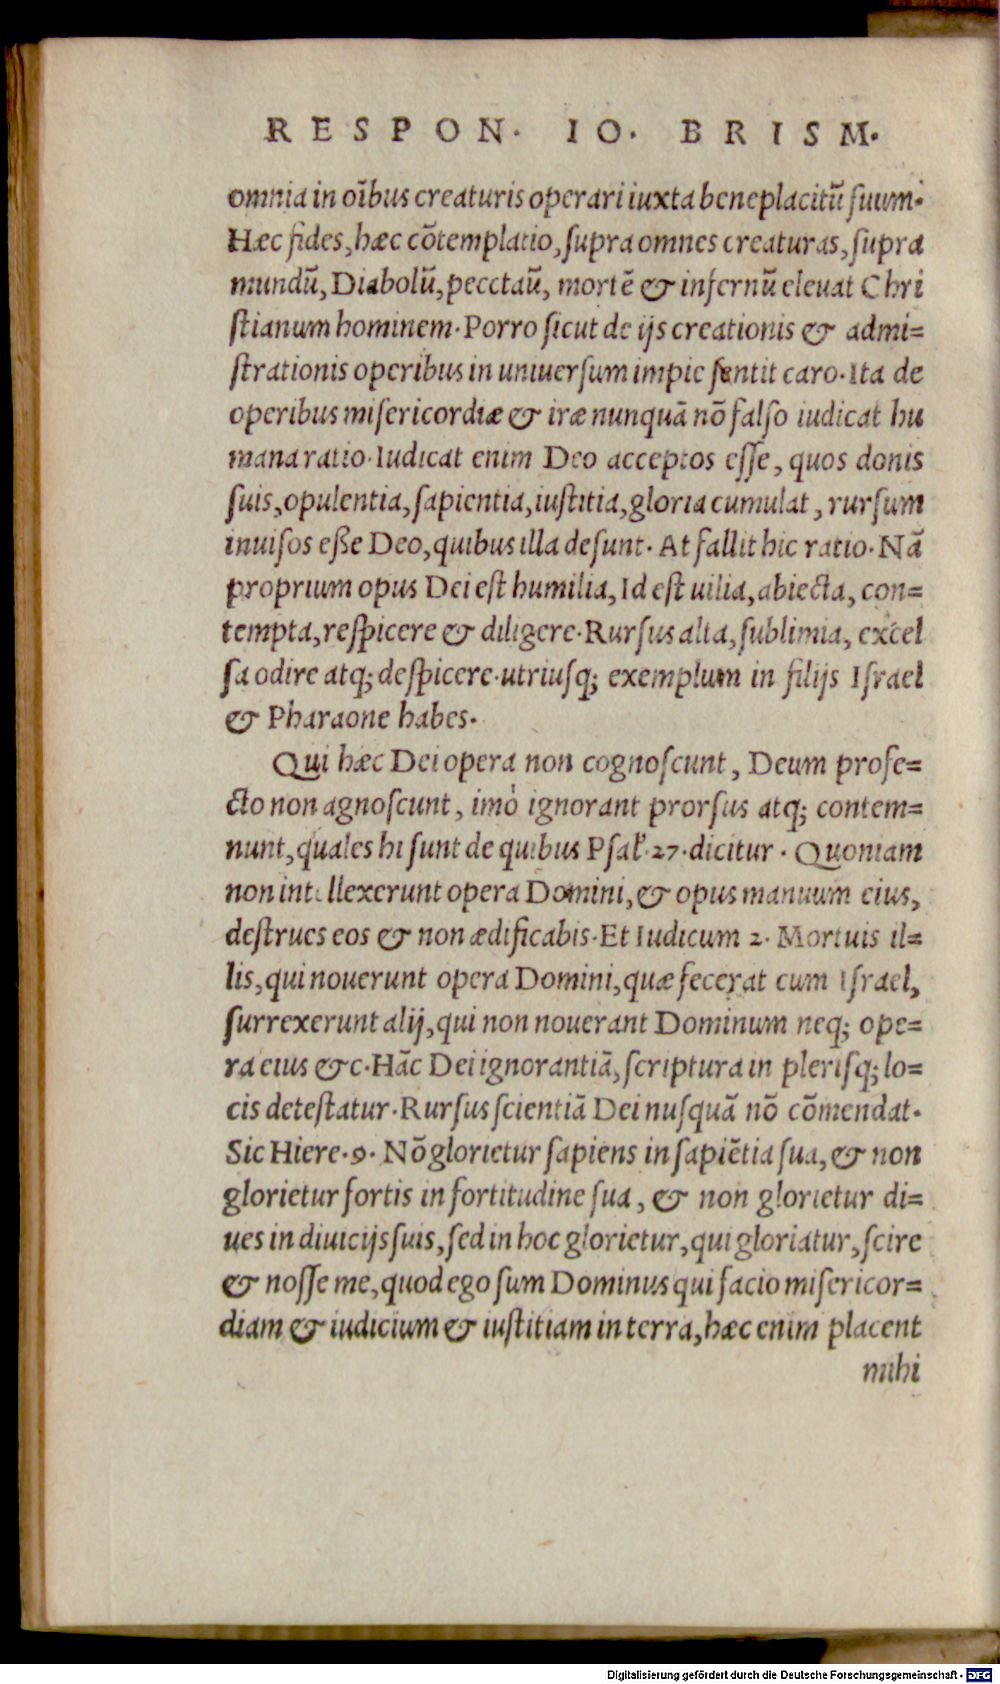 RESPON. IO. BRISM.
omnia in oībus creaturis operari iuxta beneplacitū suum.
Hæc fides, hæc cōtemplatio, supra omnes creaturas, supra
mundū, Diabolū, pecctaū, mortē & infernū eleuat Chri
stianum hominem. Porro sicut de ijs creationis & admi=
strationis operibus in uniuersum impie sentit caro. Ita de
operibus misericordiæ & iræ nunquā nō falso iudicat hu
mana ratio. Iudicat enim Deo acceptos esse, quos donis
suis, opulentia, sapientia, iustitia, gloria cumulat, rursum
inuisos eße Deo, quibus illa desunt. At fallit hic ratio. Nā
proprium opus Dei est humilia, Id est uilia, abiecta, con=
tempta, respicere & diligere. Rursus alta, sublimia, excel
sa odire atq; despicere. utriusq; exemplum in filijs Israel
& Pharaone habes.
Qui hæc Dei opera non cognoscunt, Deum profe=
cto non agnoscunt, imò ignorant prorsus atq; contem=
nunt, quales hi sunt de quibus Psal. 27. dicitur. Quoniam
non intellexerunt opera Domini, & opus manuum eius,
destrues eos & non ædificabis. Et Iudicum 2. Mortuis il=
lis, qui nouerunt opera Domini, quæ fecerat cum Israel,
surrexerunt alij, qui non nouerant Dominum neq; ope=
ra eius &c. Hāc Dei ignorantiā, scriptura in plerisq; lo=
cis detestatur. Rursus scientiā Dei nusquā nō cōmendat.
Sic Hiere. 9. Nō glorietur sapiens in sapiētia sua, & non
glorietur fortis in fortitudine sua, & non glorietur di=
ues in diuicijs suis, sed in hoc glorietur, qui gloriatur, scire
& nosse me, quod ego sum Dominus qui facio misericor=
diam & iudicium & iustitiam in terra, hæc enim placent
mihi
Digitalisierung gefördert durch die Deutsche Forschungsgemeinschaft - DFG